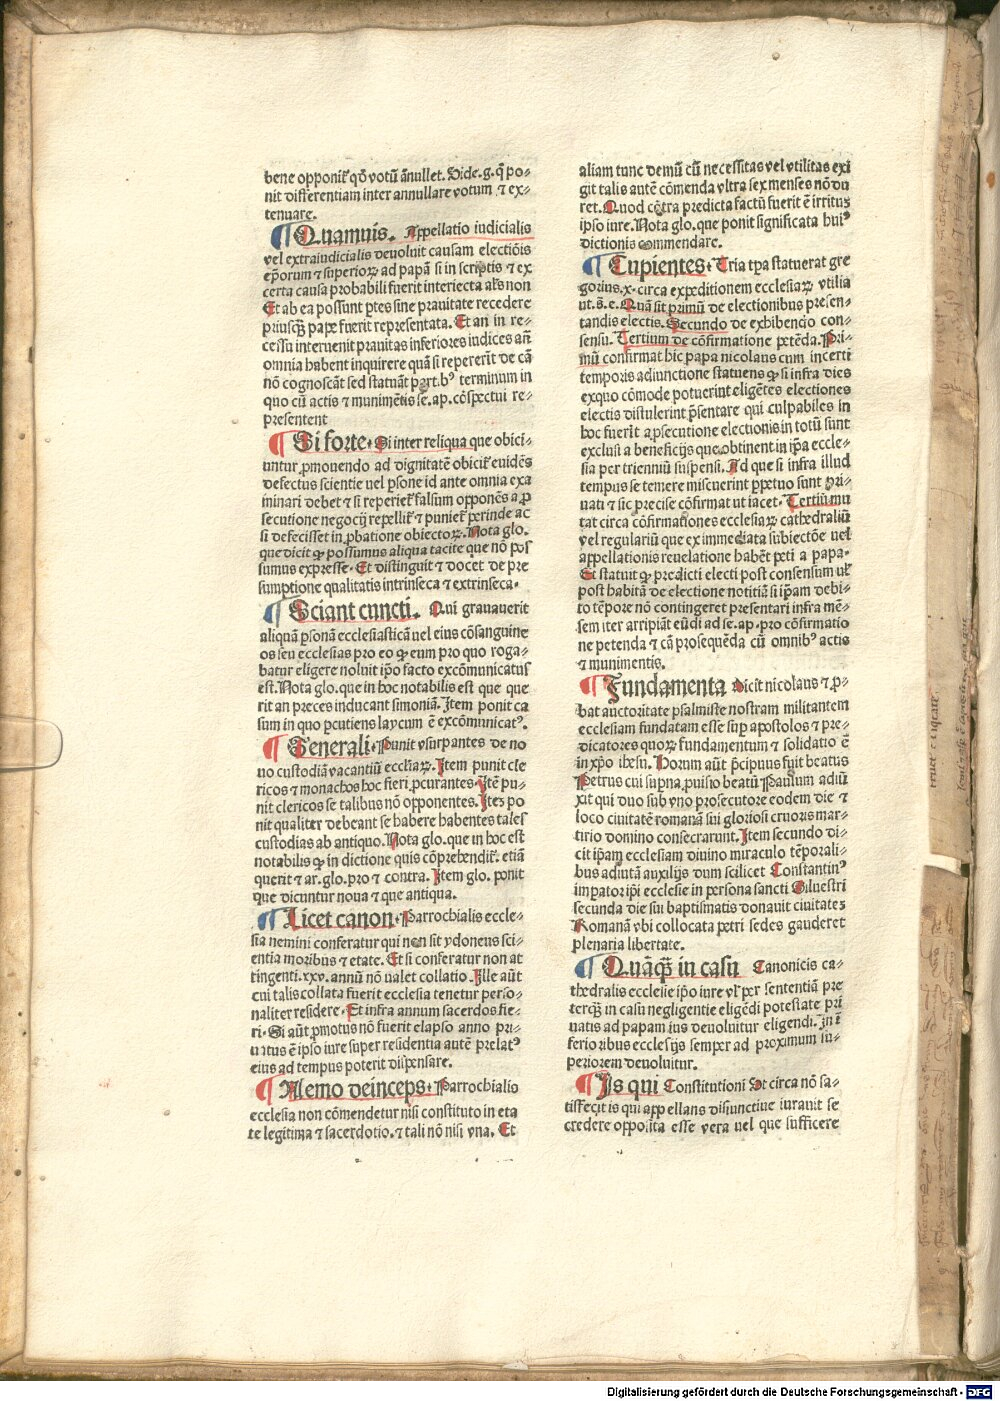 bene opponit᷑ qḋ votū ānullet. Vide. g. q̄ po⸗
nit differentiam inter annullare votum ⁊ ex⸗
tenuare.
¶ Quamuis. Appellatio iudicialis
vel extraiudicialis deuoluit causam electiōis
ep̄orum ⁊ superioꝝ ad papā si in scriptis ⁊ ex
certa causa probabili fuerit interiecta al̄s non
Et ab ea possunt ptes sine prauitate recedere
priusq̄ȝ pape fuerit representata. Et an in re⸗
cessu interuenit prauitas inferiores iudices añ
omnia habent inquirere quā si repererīt de cā
nō cognoscāt sed statuāt part.bꝰ terminum in
quo cū actis ⁊ munimētis se. ap. cōspectui re⸗
presentent
¶ Si forte. Si inter reliqua que obici⸗
untur ꝓmouendo ad dignitatē obicit᷑ euidēs
defectus scientie vel ꝑsone id ante omnia exa
minari debet ⁊ si reperiet᷑ falsum opponēs a ꝓ
secutione negocij repellit᷑ ⁊ puniet᷑ perinde ac
si defecisset in ꝓbatione obiectoꝝ. Nota glo.
que dicit ꝙ possumus aliqua tacite que nō pos
sumus expresse. Et distinguit ⁊ docet de pre
sumptione qualitatis intrinseca ⁊ extrinseca.
¶ Sciant cuncti. Qui grauauerit
aliquā ꝑsonā ecclesiasticā uel eius cōsanguine
os seu ecclesias pro eo ꝙ eum pro quo roga⸗
batur eligere noluit ip̄o facto excōmunicatus
est. Nota glo. que in hoc notabilis est que que
rit an preces inducant simoniā. Item ponit ca
sum in quo ꝑcutiens laycum ē excōmunicatꝰ.
¶ Generali. Punit vsurpantes de no
uo custodiā vacantiū eccliaꝝ. Item punit cle
ricos ⁊ monachos hoc fieri ꝓcurantes. Itē pu⸗
nit clericos se talibus nō opponentes. Itez po
nit qualiter debeant se habere habentes tales
custodias ab antiquo. Nota glo. que in hoc est
notabilis ꝙ in dictione quis cōprehendit᷑. etiā
querit ⁊ ar. glo. pro ⁊ contra. Item glo. ponit
que dicuntur noua ⁊ que antiqua.
¶ Licet canon. Parrochialis eccle⸗
sia nemini conferatur qui non sit ydoneus sci⸗
entia moribus ⁊ etate. Et si conferatur non at
tingenti .xxv. annū nō ualet collatio. Ille aūt
cui talis collata fuerit ecclesia tenetur perso⸗
naliter residere. Et infra annum sacerdos fie⸗
ri. Si aūt ꝓmotus nō fuerit elapso anno pri⸗
uatus ē ipso iure super residentia autē prelatꝰ
eius ad tempus poterit dispensare.
¶ Nemo deinceps. Parrochialio
ecclesia non cōmendetur nisi constituto in eta
te legitima ⁊ sacerdotio. ⁊ tali nō nisi vna. Et
aliam tunc demū cū necessitas vel vtilitas exi
git talis autē cōmenda vltra sex menses nō du
ret. Quod cōtra predicta factū fuerit ē irritus
ipso iure. Nota glo. que ponit significata huiꝰ
dictionis commendare.
¶ Cupientes. Tria tp̄a statuerat gre
gorius .x. circa expeditionem ecclesiaꝝ vtilia
ut. s̄. e. Quā sit primū de electionibus presen⸗
tandis electis. Secundo de exhibendo con⸗
sensu. Tertium de cōfirmatione petēda. Pri⸗
mū confirmat hic papa nicolaus cum incerti
temporis adiunctione statuens ꝙ si infra dies
exquo cōmode potuerint eligētes electiones
electis distulerint p̄sentare qui culpabiles in
hoc fuerīt a ꝓsecutione electionis in totū sunt
exclusi a beneficijs que obtinent in ip̄a eccle⸗
sia per trienniū suspensi. Ad que si infra illud
tempus se temere miscuerint ꝑpetuo sunt pri⸗
uati ⁊ sic precise cōfirmat ut iacet. Tertiū mu
tat circa cōfirmatiōes ecclesiaꝝ cathedraliū
vel regulariū que ex immediata subiectōe uel
appellationis reuelatione habēt peti a papa.
Et statuit ꝙ predicti electi post consensum ul̄
post habitā de electione notitiā si ip̄am debi⸗
to tēpore nō contingeret presentari infra mē⸗
sem iter arripiāt eūdi ad se. ap. pro cōfirmatio
ne petenda ⁊ cā prosequēda cū omnibꝰ actis
⁊ munimentis.
¶ Fundamenta Dicit nicolaus ⁊ ꝓ⸗
bat auctoritate psalmiste nostram militantem
ecclesiam fundatam esse sup apostolos ⁊ pre⸗
dicatores quoꝝ fundamentum ⁊ solidatio ē
in xp̄o ihesu. Horum aūt p̄cipuus fuit beatus
Petrus cui supna ꝓuisio beatū Paulum adiū
xit qui duo sub vno prosecutore eodem die ⁊
loco ciuitatē romanā sui gloriosi cruoris mar⸗
tirio domino consecrarunt. Item secundo di⸗
cit ip̄am ecclesiam diuino miraculo tēporali⸗
bus adiutā auxilijs dum scilicet Constantinꝰ
impator ip̄i ecclesie in persona sancti Siluestri
secunda die sui baptismatis donauit ciuitatez
Romanā vbi collocata petri sedes gauderet
plenaria libertate.
¶ Quāqȝ in casu Canonicis ca⸗
thedralis ecclesie ip̄o iure vl̄ per sententiā pre
terqȝ in casu negligentie eligēdi potestate pri
uatis ad papam ius deuoluitur eligendi. In ī
ferioribus ecclesijs semper ad proximum su⸗
periorem deuoluitur.
¶ Is qui Constitutioni Et circa nō sa⸗
tisfecit is qui appellans disiunctiue iurauit se
credere opposita esse vera uel que sufficere
Digitalisierung gefördert durch die Deutsche Forschungsgemeinschaft - DFG